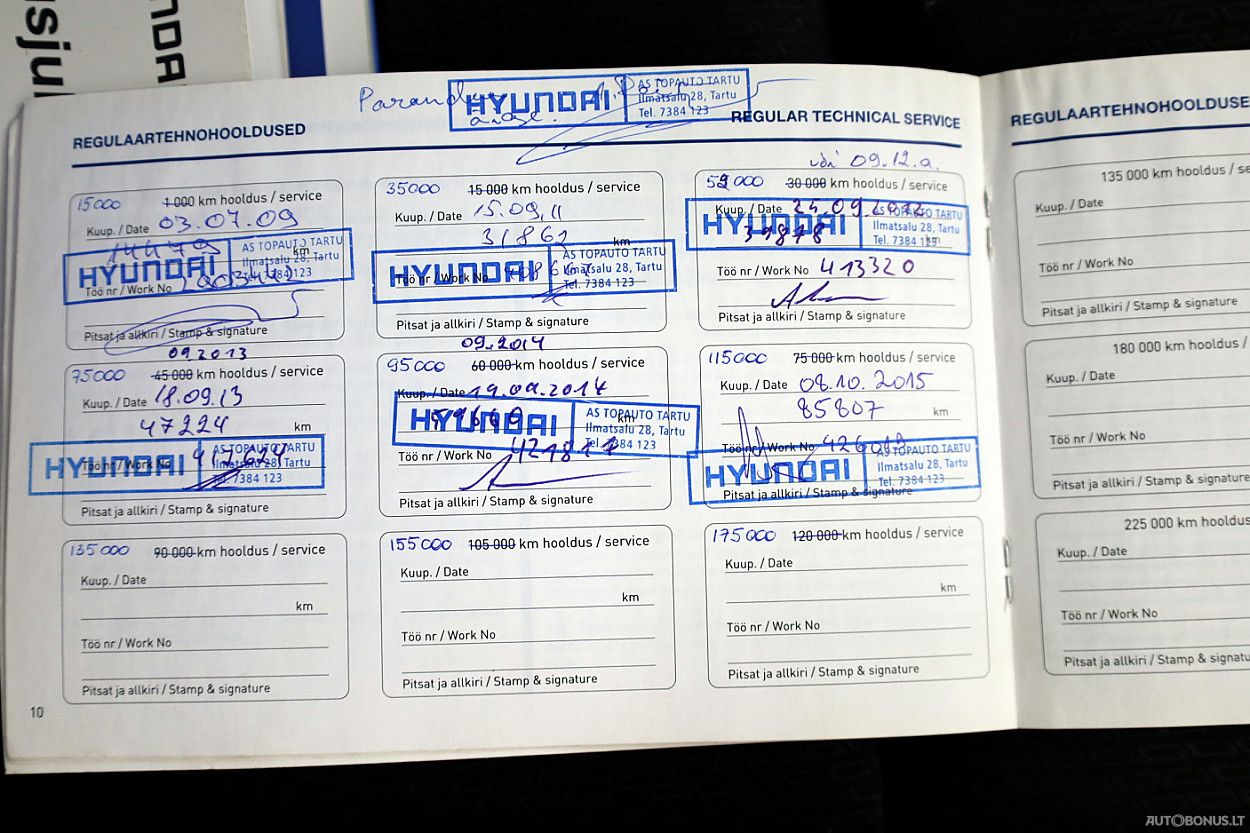 REGULAARTEHNOHOOLDUSED
HYUNDAI
AS TOPAUTO TARTU
Ilmatsalu 28, Tartu
Tel. 7384 123
REGULAR TECHNICAL SERVICE
09.12.a.
15000 1 000 km hooldus / service
Kuup. / Date 03.07.09
km
HYUNDAI
AS TOPAUTO TARTU
Ilmatsalu 28, Tartu
Tel. 7384 123
Töö nr / Work No
Pitsat ja allkiri / Stamp & signature
35000 15 000 km hooldus / service
Kuup. / Date 15.09.11
31862 km
HYUNDAI
AS TOPAUTO TARTU
Ilmatsalu 28, Tartu
Tel. 7384 123
Töö nr / Work No
Pitsat ja allkiri / Stamp & signature
30 000 km hooldus / service
Kuup. / Date
HYUNDAI
AS TOPAUTO TARTU
Ilmatsalu 28, Tartu
39878 km
Töö nr / Work No 413320
Pitsat ja allkiri / Stamp & signature
09.2013
75000 45 000 km hooldus / service
Kuup. / Date 18.09.13
47224 km
HYUNDAI
AS TOPAUTO TARTU
Ilmatsalu 28, Tartu
Tel. 7384 123
Töö nr / Work No
Pitsat ja allkiri / Stamp & signature
09.2014
95000 60 000 km hooldus / service
Kuup. / Date 19.09.2014
km
HYUNDAI
AS TOPAUTO TARTU
Ilmatsalu 28, Tartu
Tel. 7384 123
Töö nr / Work No
Pitsat ja allkiri / Stamp & signature
115000 75 000 km hooldus / service
Kuup. / Date 08.10.2015
85807 km
Töö nr / Work No
HYUNDAI
AS TOPAUTO TARTU
Ilmatsalu 28, Tartu
Tel. 7384 123
Pitsat ja allkiri / Stamp & signature
135000 90 000 km hooldus / service
Kuup. / Date
km
Töö nr / Work No
Pitsat ja allkiri / Stamp & signature
155000 105 000 km hooldus / service
Kuup. / Date
km
Töö nr / Work No
Pitsat ja allkiri / Stamp & signature
175000 120 000 km hooldus / service
Kuup. / Date
km
Töö nr / Work No
Pitsat ja allkiri / Stamp & signature
10
REGULAARTEHNOHOOLDUSE
135 000 km hooldus
Kuup. / Date
Töö nr / Work No
Pitsat ja allkiri / Stamp & signature
180 000 km hooldus /
Kuup. / Date
Töö nr / Work No
Pitsat ja allkiri / Stamp & signat
225 000 km hooldus
Kuup. / Date
Töö nr / Work No
Pitsat ja allkiri / Stamp & signatu
AUTOBONUS.LT